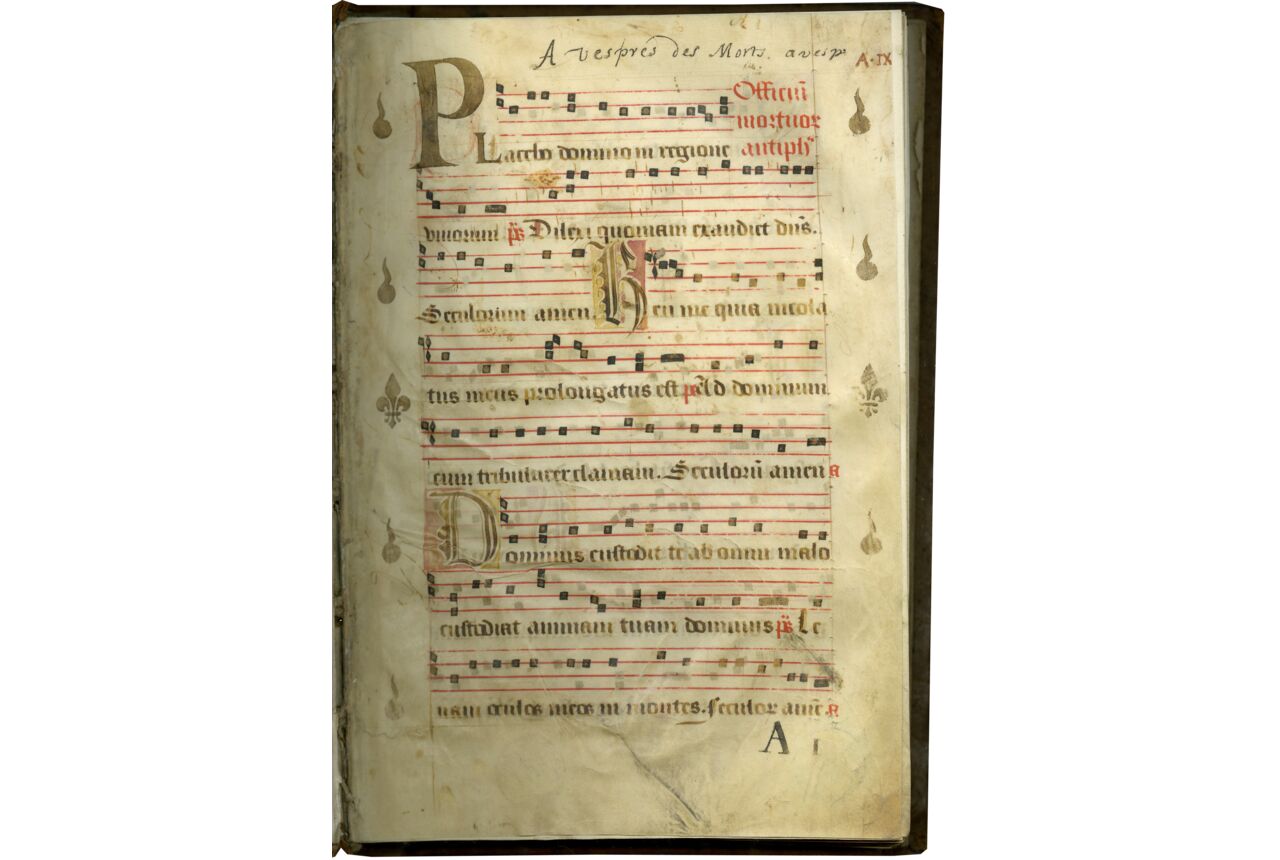 A vespres des Morts. a vesp
A·IX
Officiū
mortuor
PLacebo domino in regione antiph
vivorum ps Dilexi quoniam exaudiet dn̄s.
Seculorum amen. Heu me quia incola
tus meus prolongatus est ps Ad dominum
cum tribularer clamavi. Seculorū amen a
Dominus custodit te ab omni malo
custodiat animam tuam dominus ps Le
vavi oculos meos in montes. seculor amē. a
A I